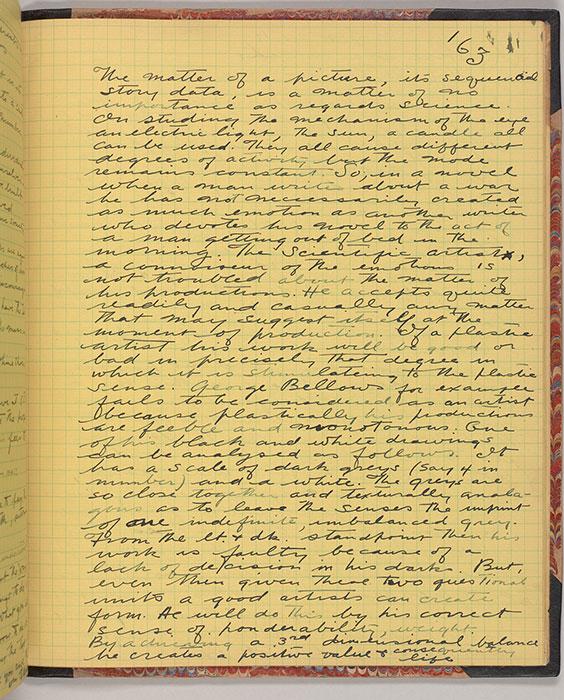 163
The matter of a picture, its sequential
story data, is a matter of no
importance as regards science.
On studing the mechanism of the eye
an electric light, the sun, a candle all
can be used. They all cause different
degrees of activity but the mode
remains constant. So, in a novel
when a man writes about a war
he has not neccessarily created
as much emotion as another writer
who devotes his novel to the act of
a man getting out of bed in the
morning. The Scientific artist,
a connoiseur of the emotions is
not troubled about the matter of
his productions. He accepts quite
readily and casually any matter
that may suggest itself at the
moment of production. Of a plastic
artist his work will be good or
bad in precisely that degree in
which it is stimulateing to the plastic
sense. George Bellows for example
fails to be considered as an artist
because plastically his productions
are feeble and monotonous. One
of his black and white drawings
can be analysed as follows. It
has a scale of dark greys (say 4 in
number) and a white. The greys are
so close together and texturally anala-
gous as to leave the senses the imprint
of one indefinite, unbalanced grey.
From the lt. & dk. standpoint then his
work is faulty because of a
lack of decision in his darks. But,
even then given these two questional
units a good artists can create
form. He will do this by his correct
sense of ponderability, weight.
By a 3rd dimensional balance
he creates a positive value & consequently
life